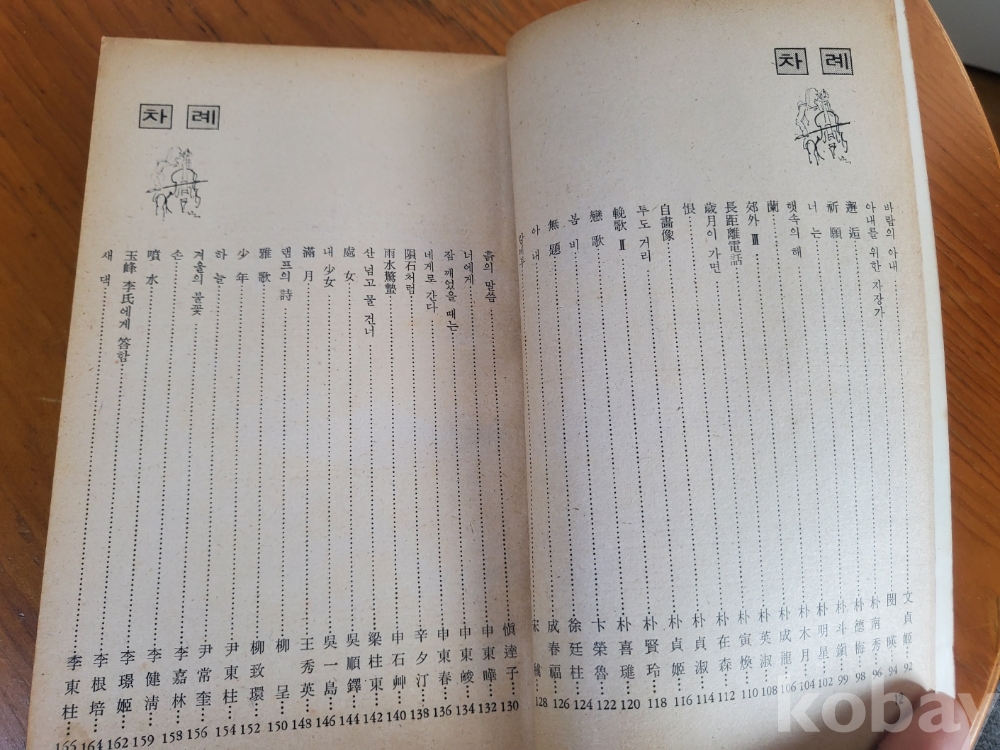 차례
바람의 아내 文貞姬 92
아내를 위한 자장가 閔暎 94
邂逅 朴南秀 96
祈願 朴德梅 98
너는 朴斗鎭 99
햇속의 해 朴明星 102
蘭 朴木月 104
郊外 Ⅲ 朴成龍 106
長距離電話 朴英淑 108
歲月이 가면 朴寅煥 110
恨 朴在森 112
自畵像 朴貞淑 114
두도 거리 朴貞姬 116
輓歌 Ⅱ 朴賢玲 118
戀歌 朴喜璡 120
봄비 卞榮魯 122
無題 徐廷柱 124
아내 成春福 126
宋 128
차례
흙의 말씀 愼達子 130
너에게 申東曄 132
잠 깨었을 때는 申東峻 134
네게로 간다 申東春 136
隕石처럼 辛夕汀 138
雨水驚蟄 申石艸 140
산 넘고 물 건너 梁柱東 142
處女 吳順鐸 144
내 少女 吳一島 146
滿月 王秀英 148
램프의 詩 柳呈 150
雅歌 柳致環 152
少年 尹東柱 154
하늘 尹常奎 156
겨울의 불꽃 李嘉林 158
손 李健淸 159
噴水 李璟姬 162
玉峰 李氏에게 答함 李根培 164
새댁 李東柱 166
kobay